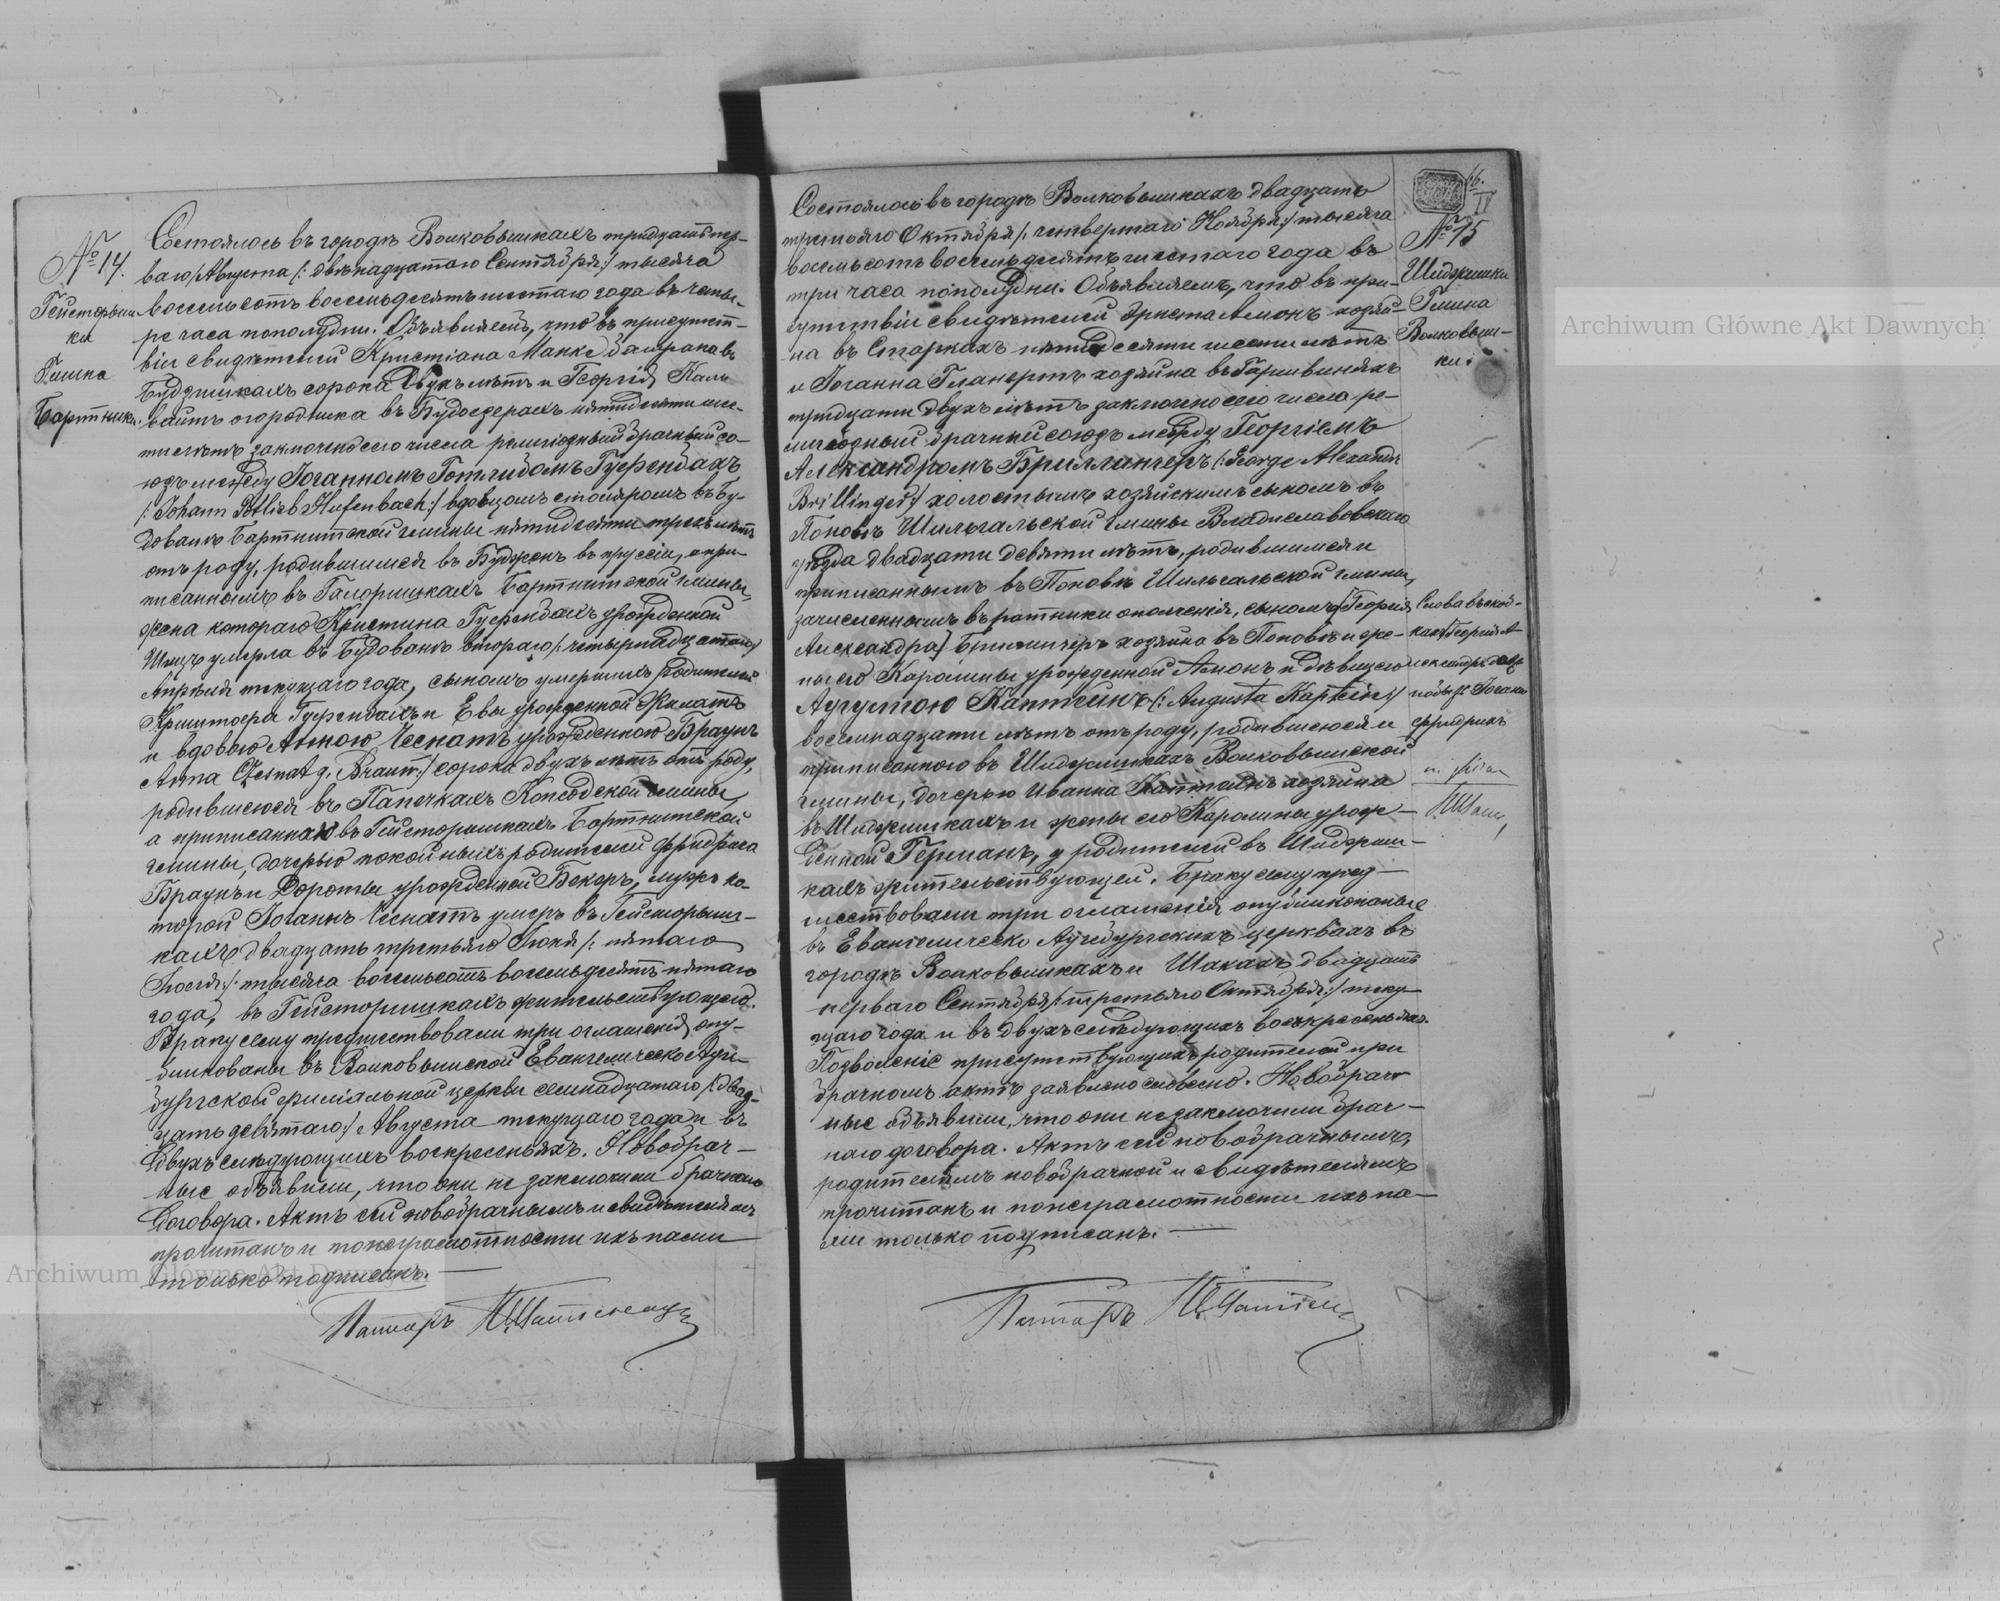 № 14.
Гейсторишки
Гмина
Бартники.
Состоялось въ городѣ Волковышкахъ тридцать пер-
ваго Августа /: двѣнадцатаго Сентября :/ тысяча
восемьсотъ восемьдесятъ шестаго года въ четы-
ре часа пополудни. Объявляемъ, что въ присутст-
віи свидѣтелей Кристіана Манке въ
сорока двухъ лѣтъ и Георгія
огородника въ пятидесяти ше-
сти лѣтъ заключенъ сего числа религіозный брачный со-
юзъ между Іоганномъ Готлибомъ Гуфенбахъ
/: Johann Gottlieb Hufenbach :/ вдовцомъ столяромъ въ Бу-
дованѣ Бартнитской гмины пятидесяти трехъ лѣтъ
отъ роду, родившимся въ въ Пруссіи, а при-
писаннымъ въ Бартнитской гмины,
жена котораго Кристина Гуфенбахъ урожденной
умерла въ Будованѣ втораго /: четырнадцатаго :/
Апрѣля текущаго года, сыномъ умершихъ родителей
Криштофа Гуфенбахъ и Евы урожденной
и вдовою Анною Чеснатъ урожденною Браунъ
Anna Czesnat g. Braun :/ сорока двухъ лѣтъ отъ роду,
родившеюся въ Папечкахъ гмины,
а приписанная въ Гейсторишкахъ Бартнитской
гмины, дочерью покойныхъ родителей Фридриха
Браунъ и Дороты урожденной Бекеръ, мужъ ко-
торой Іоганъ Чеснатъ умеръ въ Гейсториш-
кахъ двадцать третьяго Іюня /: пятаго
Іюля :/ тысяча восемьсотъ восемьдесятъ пятаго
года, въ Гейсторишкахъ жительствующею.
Браку сему предшествовали три оглашенія опу-
бликованы въ Волковышской Евангелическо Ауг-
бургской филіальной церкви семнадцатаго /: двад-
цать девятаго :/ Августа текущаго года и въ
двухъ слѣдующихъ воскресеньяхъ. Новобрач-
ные объявили, что они не заключили брачнаго
договора. Актъ сей новобрачнымъ и свидѣтелямъ
прочитанъ и по неграмотности ихъ нами
только подписанъ.
Пасторъ
Состоялось въ городѣ Волковышкахъ двадцать
третьяго Октября /: четвертаго Ноября :/ тысяча
восемьсотъ восемьдесятъ шестаго года въ
три часа пополудни. Объявляемъ, что въ при-
сутствіи свидѣтелей Эрнста Амонъ хозяи-
на въ Старкахъ пятидесяти шести лѣтъ
и Іоганна Гланертъ хозяина въ
тридцати двухъ лѣтъ заключенъ сего числа ре-
лигіозный брачный союзъ между Георгіемъ
Александромъ Бриллингеръ /: George Alexander
Brillinger :/ холостымъ хозяйскимъ сыномъ въ
Поповѣ Шильгальской гмины Владиславовскаго
уѣзда двадцати девяти лѣтъ, родившимся и
приписаннымъ въ Поповѣ Шильгальской гмины,
зачисленнымъ въ ратники ополченія, сыномъ [Георгія
Александра] Бриллингеръ хозяина въ Поповѣ и же-
ны его Каролины урожденной Амонъ и дѣвицею
Аугустою Каптейнъ /: Augusta Kaptein :/
восемнадцати лѣтъ отъ роду, родившеюся и
приписанною въ Шидзишкахъ Волковышской
гмины, дочерью Иванна Каптейнъ хозяина
въ Шидзишкахъ и жены его Каролины урож-
денной Германъ, у родителей въ Шидзиш-
кахъ жительствующей. Браку сему пред-
шествовали три оглашенія опубликованые
въ Евангелическо Аугсбургскихъ церквахъ въ
городѣ Волковышкахъ и Шакахъ двадцать
перваго Сентября /: третьяго Октября :/ теку-
щаго года и въ двухъ слѣдующихъ воскресеньяхъ.
Позволеніе присутствующихъ родителей при
брачномъ актѣ заявлено словесно. Новобрач-
ные объявили, что они не заключили брач-
наго договора. Актъ сей новобрачнымъ,
родителямъ новобрачной и свидѣтелямъ
прочитанъ и по неграмотности ихъ на-
ми только подписанъ.
Пасторъ
№ 15
Шидзишки
Гмина
Волковыш-
ки.
Слова въ скоб-
кахъ Георгій А-
лександръ
Іоганъ
Фридрихъ
Archiwum Główne Akt Dawnych
Archiwum Główne Akt Dawnych